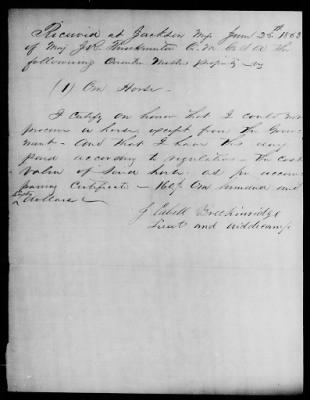 Received at Jackson Mip June 26th 1863
of Maj J. R. Q.M. C.S.A. the
following Quarter Masters property - viz
(1) One Horse -
I certify on honor that I could not
procure a horse, except from the Govern
ment - And that I have this day
paid according to regulations - the cost
value of said horse, as per accom
panying Certificate - 160$ One hundred and
Sixty Dollars
J Cabell Breckinridge
Lieut and aid de camp